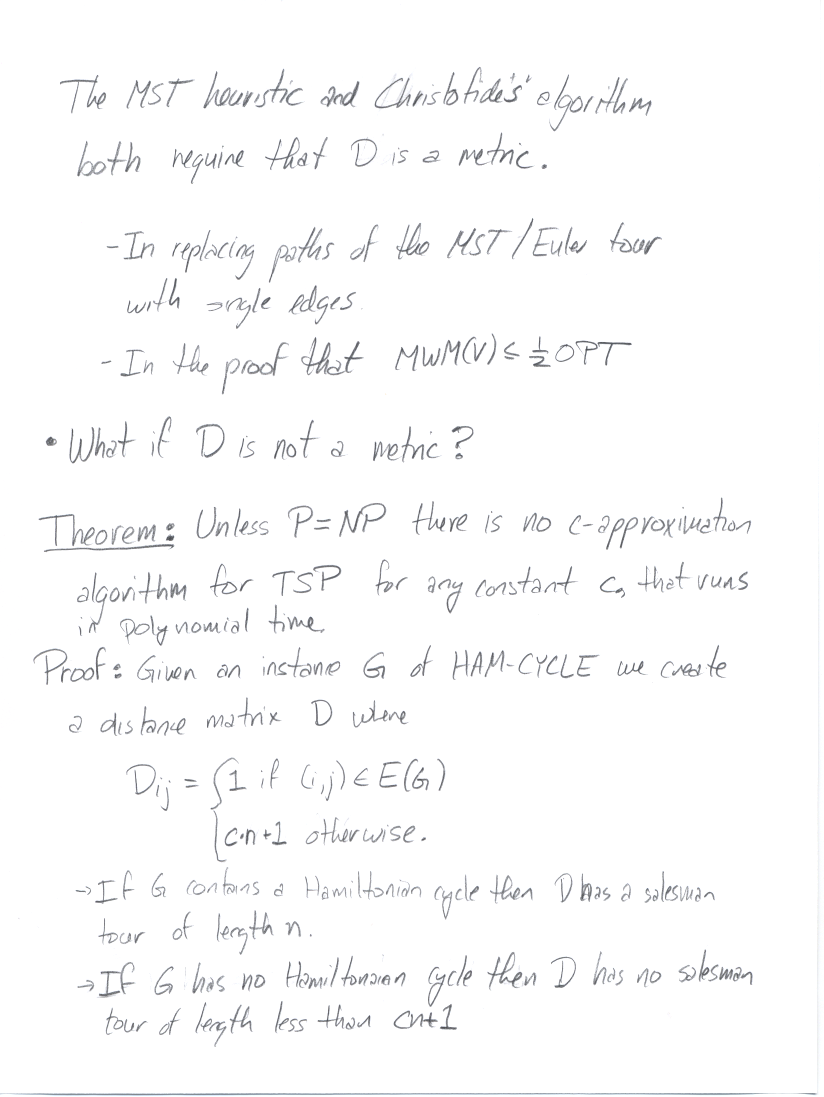 The MST heuristic and Christofide's' algorithm
both require that D is a metric.
- In replacing paths of the MST/Euler tour
with single edges.
- In the proof that MWM(V) ≤ ½OPT
• What if D is not a metric?
Theorem: Unless P=NP there is no c-approximation
algorithm for TSP for any constant c, that runs
in polynomial time.
Proof: Given an instance G of HAM-CYCLE we create
a distance matrix D where
Dij = {1 if (i,j) ∈ E(G)
{c·n+1 otherwise.
→ If G contains a Hamiltonian cycle then D has a salesman
tour of length n.
→ If G has no Hamiltonian cycle then D has no salesman
tour of length less than cn+1